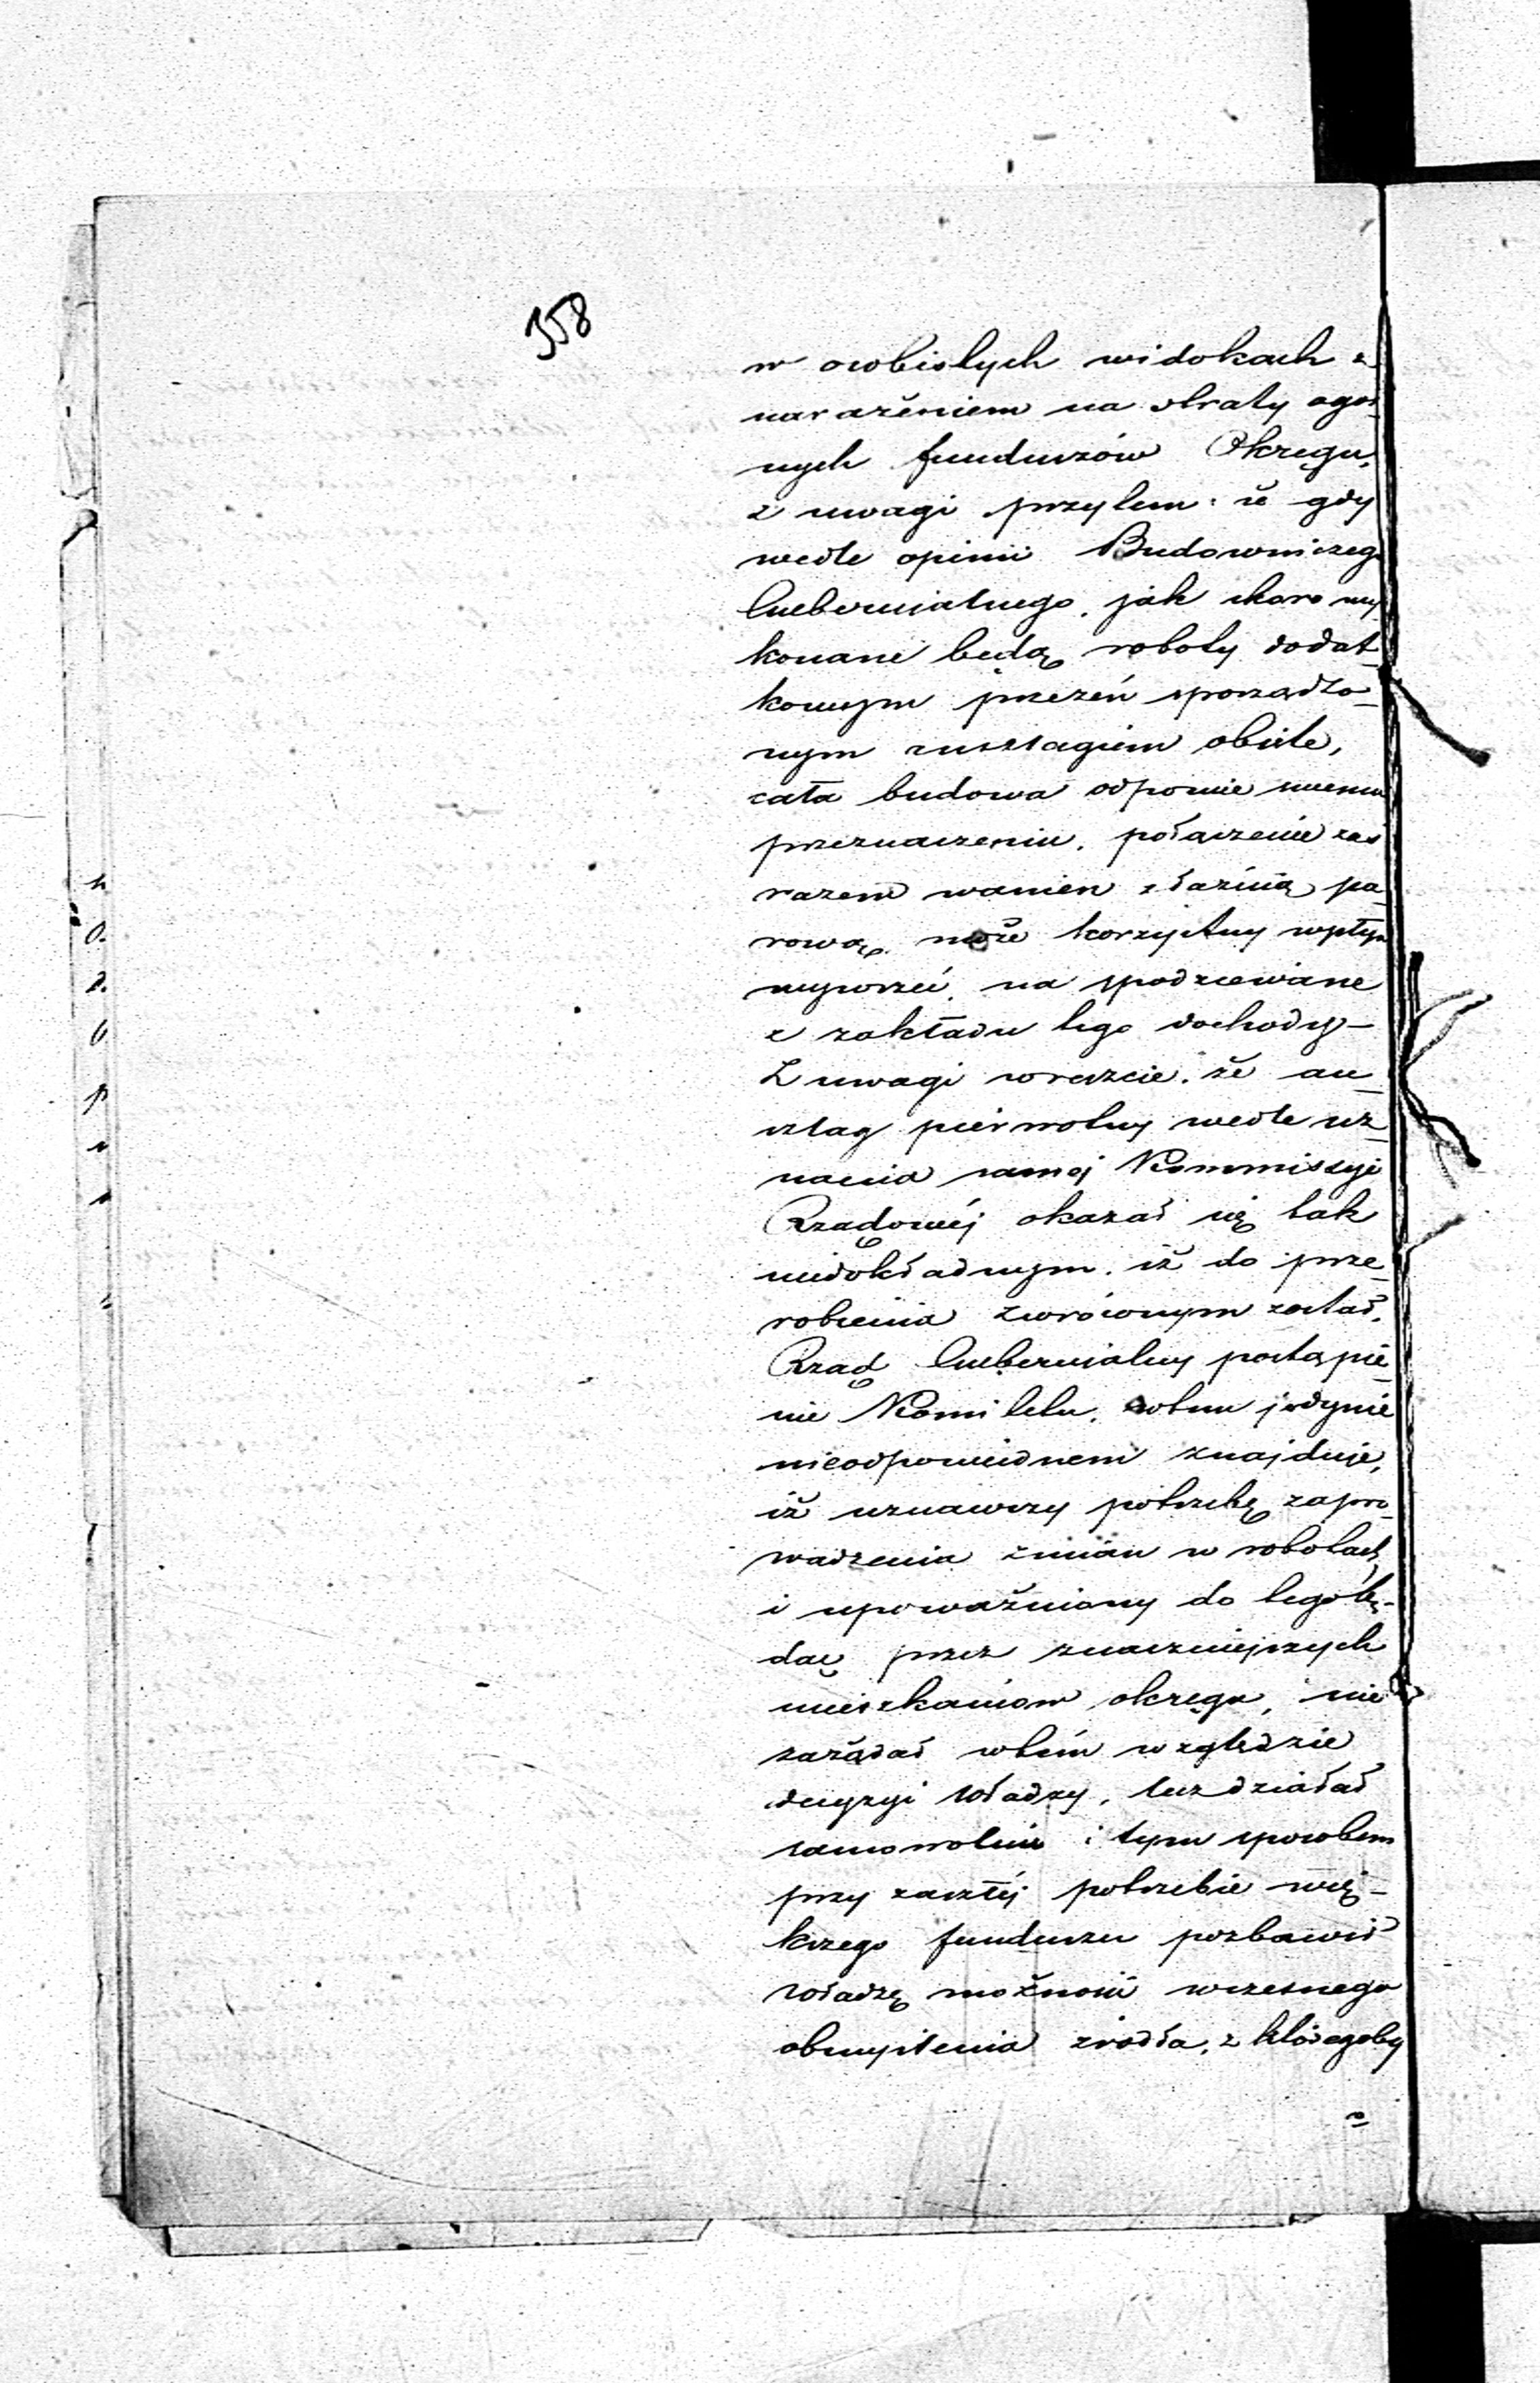 358
w osobistych widokach z
narażeniem na straty ogól
nych funduszów Okręgu,
z uwagi przytem: że gdy
wedle opinii Budowniczego
Gubernialnego, jak skoro wy
konane będą roboty dodat
kowym przezeń sporządzo-
nym anszlagiem objęte,
cała budowa odpowie swemu
przeznaczeniu, połączenie zaś
razem wanien z łaźnią pa-
rową, może korzystny wpływ
wywrzeć na spodziewane
z zakładu tego dochody –
Z uwagi wreszcie, że an-
szlag pierwotny wedle uz-
nania samej Kommissyi
Rządowéj okazał się tak
niedokładnym, iż do prze-
robienia zwróconym został,
Rząd Gubernialny postąpie-
nie Komitetu, wtem jedynie
nieodpowiedniem znajduje,
iż uznawszy potrzebę zapro-
wadzenia zmian w robotach
i upoważniony do tego bę-
dąc przez znaczniejszych
mieszkańców okręgu, nie
zażądał wtém względzie
decyzyi Władzy, lecz działał
samowolnie i tym sposobem
przy zaszłéj potrzebie więk-
kszego funduszu pozbawił
Władzę możności wczesnego
obmyślenia źródła, z któregoby